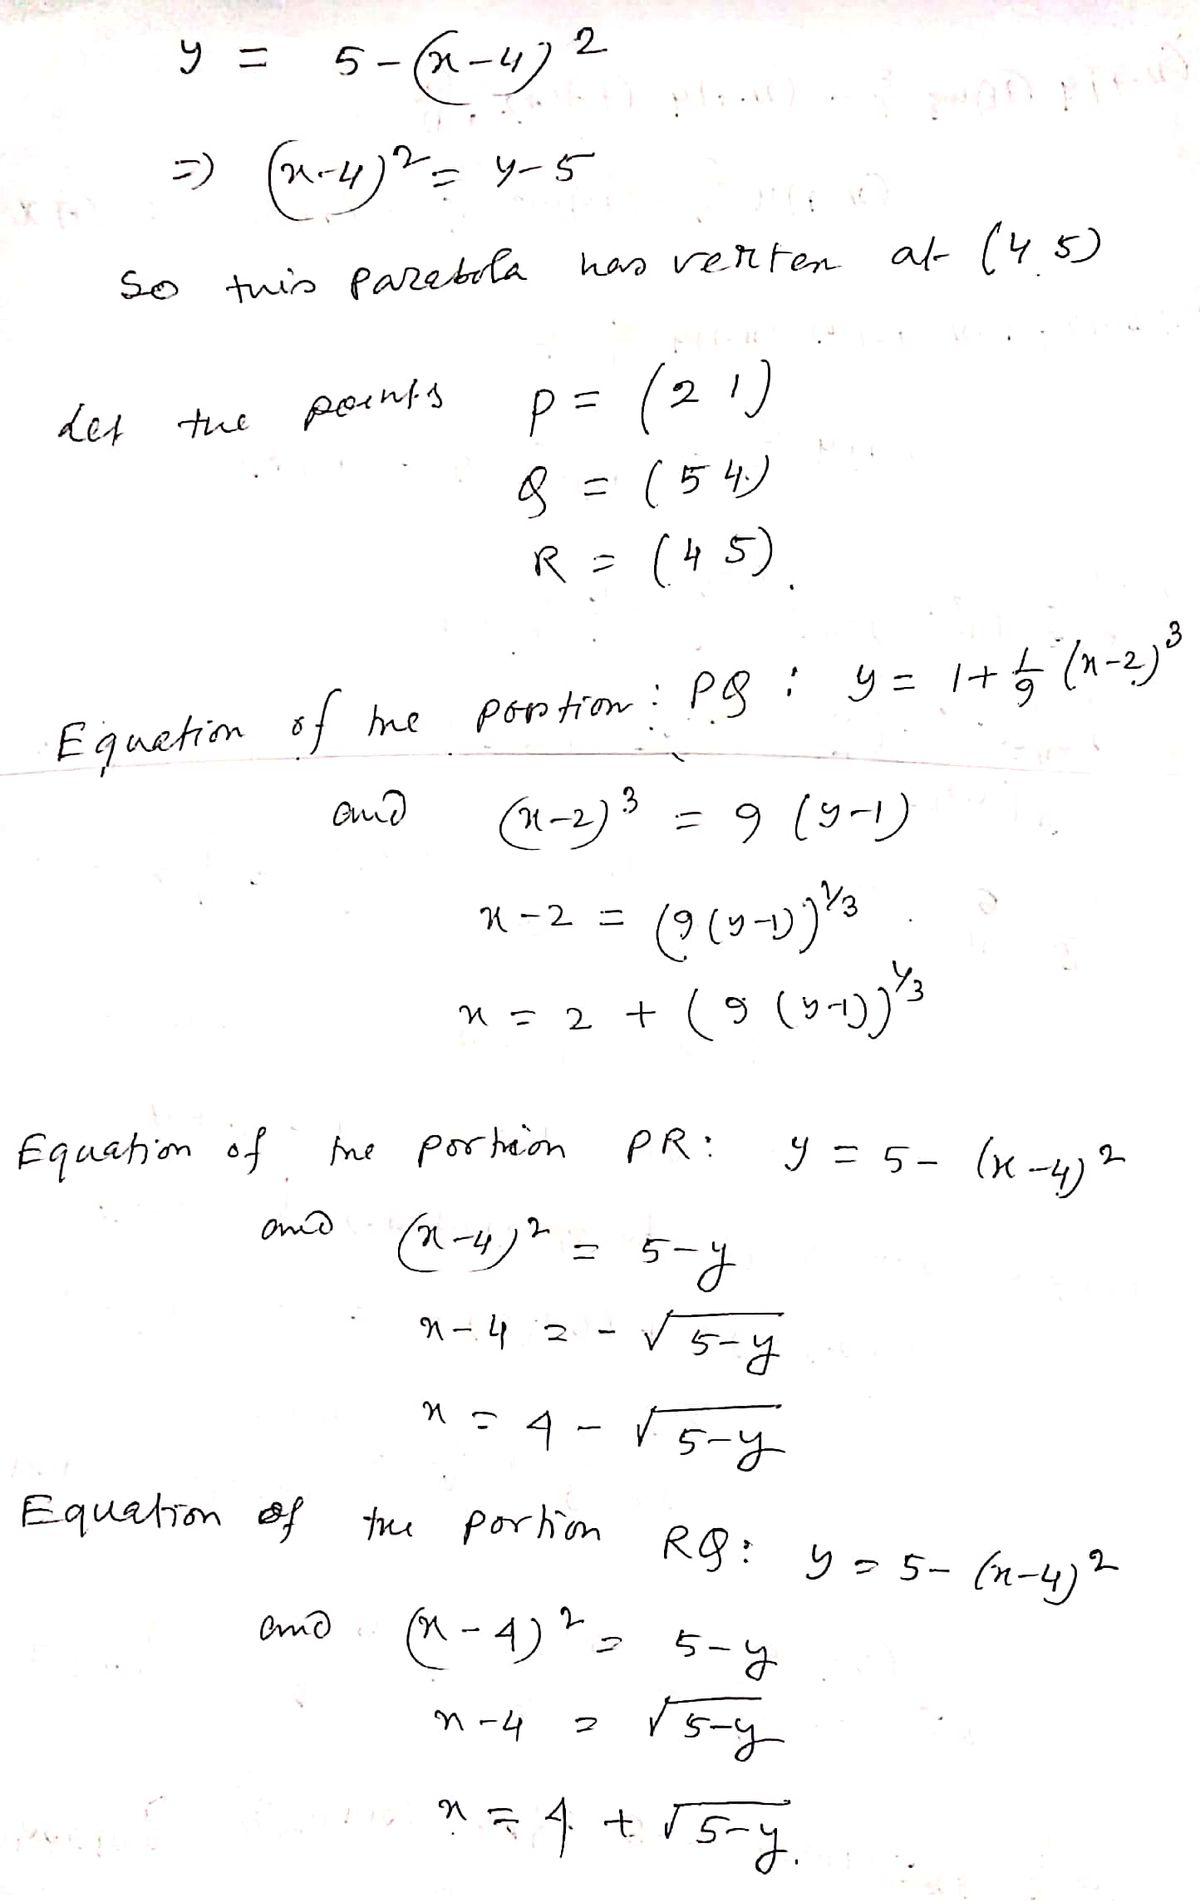 y = 5-(x-4)²
=> (x-4)² = y-5
So this parabola has verten at (4 5)
Let the points P = (2 1)
Q = (5 4)
R = (4 5).
Equation of the portion: PQ : y = 1+1/9 (x-2)³
and (x-2)³ = 9 (y-1)
x-2 = (9(y-1))^1/3
x = 2 + (9(y-1))^1/3
Equation of the portion PR: y = 5- (x-4)²
and (x-4)² = 5-y
x-4 = -√5-y
x = 4 - √5-y
Equation of the portion RQ: y = 5- (x-4)²
and (x-4)² = 5-y
x-4 = √5-y
x = 4 + √5-y.